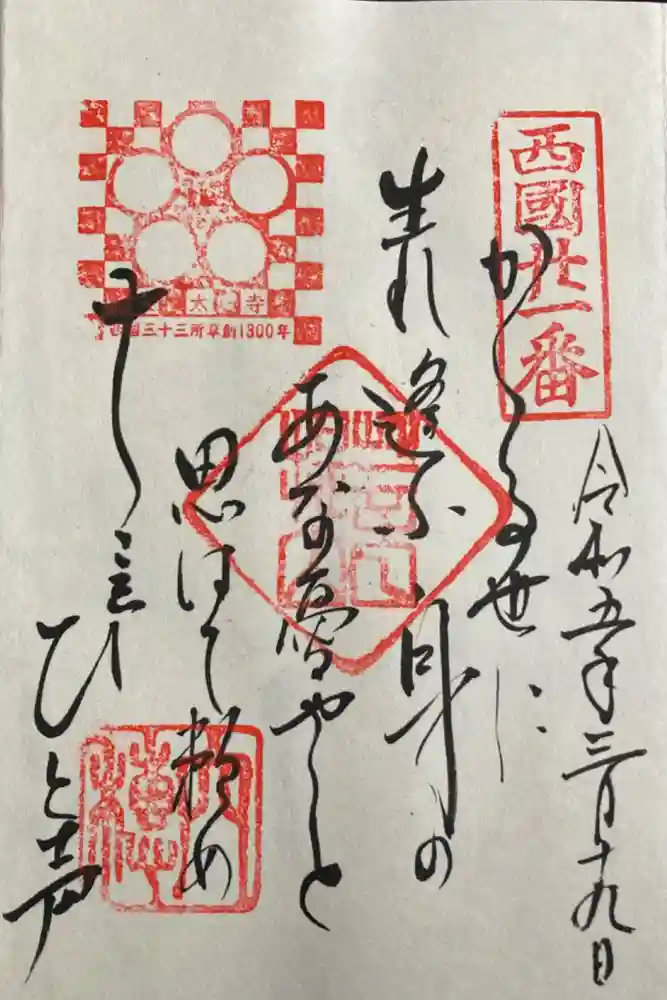 西國廿一番
令和五年三月十九日
かゝる世に
生れ逢ふ身の
あな憂やと
思はて頼め
十 ひと声
太 寺
西国三十三所草創1300年